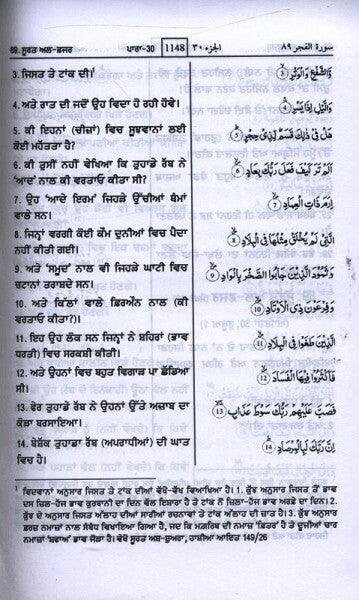 89. ਸੂਰਤ ਅਲ-ਫਜਰ ਪਾਰਾ-30 1148 الجزء ٣٠ سورة الفجر ٨٩
3. ਜਿਸਤ ਤੇ ਟਾਂਕ ਦੀ।¹
وَّالشَّفْعِ وَالْوَتْرِ 3
4. ਅਤੇ ਰਾਤ ਦੀ ਜਦੋਂ ਉਹ ਵਿਦਾ ਹੋ ਰਹੀ ਹੋਵੇ।
وَالَّيْلِ اِذَا يَسْرِ 4
5. ਕੀ ਇਹਨਾਂ (ਚੀਜ਼ਾਂ) ਵਿਚ ਸੂਝਵਾਨਾਂ ਲਈ
ਕੋਈ ਮਹੱਤਤਾ ਹੈ?
هَلْ فِيْ ذٰلِكَ قَسَمٌ لِّذِيْ حِجْرٍ 5
6. ਕੀ ਤੁਸੀਂ ਨਹੀਂ ਵੇਖਿਆ ਕਿ ਤੁਹਾਡੇ ਰੱਬ ਨੇ
'ਆਦ' ਨਾਲ ਕੀ ਵਰਤਾਓ ਕੀਤਾ ਸੀ?
اَلَمْ تَرَ كَيْفَ فَعَلَ رَبُّكَ بِعَادٍ 6
7. ਉਹ 'ਆਦੇ ਇਰਮ' ਜਿਹੜੇ ਉੱਚੀਆਂ ਥੰਮਾਂ
ਵਾਲੇ ਸਨ।
اِرَمَ ذَاتِ الْعِمَادِ 7
8. ਜਿਨ੍ਹਾਂ ਵਰਗੀ ਕੋਈ ਕੌਮ ਦੁਨੀਆਂ ਵਿਚ ਪੈਦਾ
ਨਹੀਂ ਕੀਤੀ ਗਈ।
الَّتِيْ لَمْ يُخْلَقْ مِثْلُهَا فِي الْبِلَادِ 8
9. ਅਤੇ 'ਸਮੂਦ' ਨਾਲ ਵੀ ਜਿਹੜੇ ਘਾਟੀ ਵਿਚ
ਚਟਾਨਾਂ ਤਰਾਸ਼ਦੇ ਸਨ।
وَثَمُوْدَ الَّذِيْنَ جَابُوا الصَّخْرَ بِالْوَادِ 9
10. ਅਤੇ ਕਿੱਲਾਂ ਵਾਲੇ ਫ਼ਿਰਔਨ ਨਾਲ (ਕੀ
ਵਰਤਾਓ ਕੀਤਾ?)।
وَفِرْعَوْنَ ذِي الْاَوْتَادِ 10
11. ਇਹ ਉਹ ਲੋਕ ਸਨ ਜਿਨ੍ਹਾਂ ਨੇ ਸ਼ਹਿਰਾਂ (ਭਾਵ
ਧਰਤੀ) ਵਿਚ ਸਰਕਸ਼ੀ ਕੀਤੀ।
الَّذِيْنَ طَغَوْا فِي الْبِلَادِ 11
12. ਅਤੇ ਉਹਨਾਂ ਵਿਚ ਬਹੁਤ ਵਿਗਾੜ ਪਾ ਛੱਡਿਆ
ਸੀ।
فَاَكْثَرُوْا فِيْهَا الْفَسَادَ 12
13. ਫੇਰ ਤੁਹਾਡੇ ਰੱਬ ਨੇ ਉਹਨਾਂ ਉੱਤੇ ਅਜ਼ਾਬ ਦਾ
ਕੋੜਾ ਬਰਸਾਇਆ।
فَصَبَّ عَلَيْهِمْ رَبُّكَ سَوْطَ عَذَابٍ 13
14. ਬੇਸ਼ੱਕ ਤੁਹਾਡਾ ਰੱਬ (ਅਪਰਾਧੀਆਂ) ਦੀ ਘਾਤ
ਵਿਚ ਹੈ।
اِنَّ رَبَّكَ لَبِالْمِرْصَادِ 14
¹ ਵਿਦਵਾਨਾਂ ਅਨੁਸਾਰ ਜਿਸਤ ਤੇ ਟਾਂਕ ਦੀਆਂ ਵੱਖੋ-ਵੱਖ ਵਿਆਖਿਆ ਹੈ। 1. ਕੁੱਝ ਅਨੁਸਾਰ ਜਿਸਤ ਤੋਂ ਭਾਵ
ਦਸ ਜ਼ਿਲ-ਹੱਜ ਭਾਵ ਕੁਰਬਾਨੀ ਦਾ ਦਿਨ ਵੱਲ ਇਸ਼ਾਰਾ ਹੈ ਤੇ ਟਾਂਕ ਨੌਂ ਜ਼ਿਲ-ਹੱਜ ਭਾਵ ਅਰਫ਼ੇ ਦਾ ਦਿਨ। 2.
ਕੁੱਝ ਦੇ ਅਨੁਸਾਰ ਜਿਸਤ ਅੱਲਾਹ ਦੀਆਂ ਸਾਰੀਆਂ ਰਚਨਾਵਾਂ ਤੇ ਟਾਂਕ ਅੱਲਾਹ ਦੀ ਜ਼ਾਤ ਹੈ। 3. ਕੁੱਝ ਅਨੁਸਾਰ
ਫ਼ਰਜ਼ ਨਮਾਜ਼ਾਂ ਨਾਲ ਸੰਬੰਧ ਵਿਖਾਇਆ ਗਿਆ ਹੈ, ਜਦ ਕਿ ਮਗ਼ਰਿਬ ਦੀ ਨਮਾਜ਼ 'ਵਿਤਰ' ਹੈ ਤੇ ਦੂਜੀਆਂ ਚਾਰ
ਨਮਾਜ਼ਾਂ 'ਸ਼ਫ਼ਆ' ਭਾਵ ਜੋੜਾ ਹੈ। ਵੇਖੋ ਸੂਰਤ ਅਸ਼-ਸ਼ੁਅਰਾ, ਹਾਸ਼ੀਆ ਆਇਤ 149/26